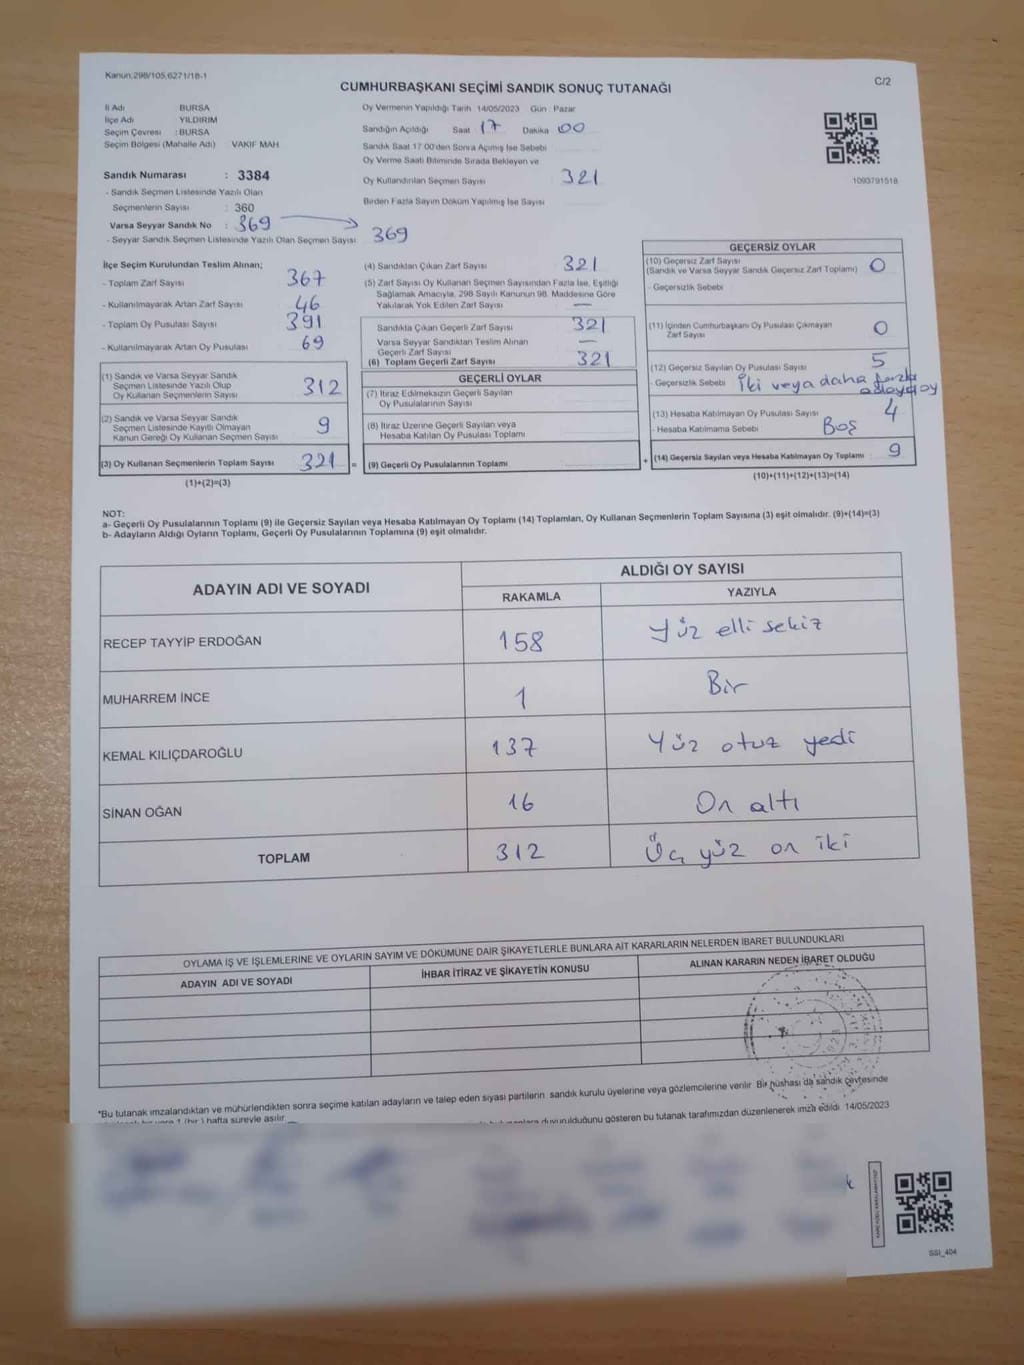 Kanun:298/105,6271/18-1
C/2
CUMHURBAŞKANI SEÇİMİ SANDIK SONUÇ TUTANAĞI
İl Adı BURSA
İlçe Adı YILDIRIM
Seçim Çevresi : BURSA
Seçim Bölgesi (Mahalle Adı) VAKIF MAH.
Sandık Numarası : 3384
- Sandık Seçmen Listesinde Yazılı Olan
Seçmenlerin Sayısı : 360
Varsa Seyyar Sandık No : 369
- Seyyar Sandık Seçmen Listesinde Yazılı Olan Seçmen Sayısı 369
Oy Vermenin Yapıldığı Tarih 14/05/2023 Gün : Pazar
Sandığın Açıldığı Saat 17 Dakika 00
Sandık Saat 17.00'den Sonra Açmış İse Sebebi
Oy Verme Saati Bitiminde Sırada Bekleyen ve
Oy Kullandırılan Seçmen Sayısı 321
Birden Fazla Sayım Döküm Yapılmış İse Sayısı
1093791518
İlçe Seçim Kurulundan Teslim Alınan;
- Toplam Zarf Sayısı 367
- Kullanılmayarak Artan Zarf Sayısı 46
- Toplam Oy Pusulası Sayısı 391
- Kullanılmayarak Artan Oy Pusulası 69
(1) Sandık ve Varsa Seyyar Sandık
Seçmen Listesinde Yazılı Olup
Oy Kullanan Seçmenlerin Sayısı 312
(2) Sandık ve Varsa Seyyar Sandık
Seçmen Listesinde Kayıtlı Olmayan
Kanun Gereği Oy Kullanan Seçmen Sayısı 9
(3) Oy Kullanan Seçmenlerin Toplam Sayısı 321 =
(1)+(2)=(3)
(4) Sandıktan Çıkan Zarf Sayısı 321
(5) Zarf Sayısı Oy Kullanan Seçmen Sayısından Fazla İse, Eşitliği
Sağlamak Amacıyla, 298 Sayılı Kanunun 98. Maddesine Göre
Yakılarak Yok Edilen Zarf Sayısı —
Sandıkta Çıkan Geçerli Zarf Sayısı 321
Varsa Seyyar Sandıktan Teslim Alınan
Geçerli Zarf Sayısı —
(6) Toplam Geçerli Zarf Sayısı 321
GEÇERLİ OYLAR
(7) İtiraz Edilmeksizin Geçerli Sayılan
Oy Pusulalarının Sayısı
(8) İtiraz Üzerine Geçerli Sayılan veya
Hesaba Katılan Oy Pusulası Toplamı
(9) Geçerli Oy Pusulalarının Toplamı +
GEÇERSİZ OYLAR
(10) Geçersiz Zarf Sayısı
(Sandık ve Varsa Seyyar Sandık Geçersiz Zarf Toplamı) 0
- Geçersizlik Sebebi
(11) İçinden Cumhurbaşkanı Oy Pusulası Çıkmayan
Zarf Sayısı 0
(12) Geçersiz Sayılan Oy Pusulası Sayısı 5
- Geçersizlik Sebebi İki veya daha fazla
adaya oy
(13) Hesaba Katılmayan Oy Pusulası Sayısı 4
- Hesaba Katılmama Sebebi Boş
(14) Geçersiz Sayılan veya Hesaba Katılmayan Oy Toplamı 9
(10)+(11)+(12)+(13)=(14)
NOT:
a- Geçerli Oy Pusulalarının Toplamı (9) ile Geçersiz Sayılan veya Hesaba Katılmayan Oy Toplamı (14) Toplamları, Oy Kullanan Seçmenlerin Toplam Sayısına (3) eşit olmalıdır. (9)+(14)=(3)
b- Adayların Aldığı Oyların Toplamı, Geçerli Oy Pusulalarının Toplamına (9) eşit olmalıdır.
ADAYIN ADI VE SOYADI
ALDIĞI OY SAYISI
RAKAMLA YAZIYLA
RECEP TAYYİP ERDOĞAN 158 Yüz elli sekiz
MUHARREM İNCE 1 Bir
KEMAL KILIÇDAROĞLU 137 Yüz otuz yedi
SİNAN OĞAN 16 On altı
TOPLAM 312 Üç yüz on iki
OYLAMA İŞ VE İŞLEMLERİNE VE OYLARIN SAYIM VE DÖKÜMÜNE DAİR ŞİKAYETLERLE BUNLARA AİT KARARLARIN NELERDEN İBARET BULUNDUKLARI
ADAYIN ADI VE SOYADI İHBAR İTİRAZ VE ŞİKAYETİN KONUSU ALINAN KARARIN NEDEN İBARET OLDUĞU
*Bu tutanak imzalandıktan ve mühürlendikten sonra seçime katılan adayların ve talep eden siyasi partilerin sandık kurulu üyelerine veya gözlemcilerine verilir. Bir nüshası da sandık çevresinde
1 (bir) hafta süreyle asılır. duyurulduğunu gösteren bu tutanak tarafımızdan düzenlenerek imza edildi. 14/05/2023
SSI_404